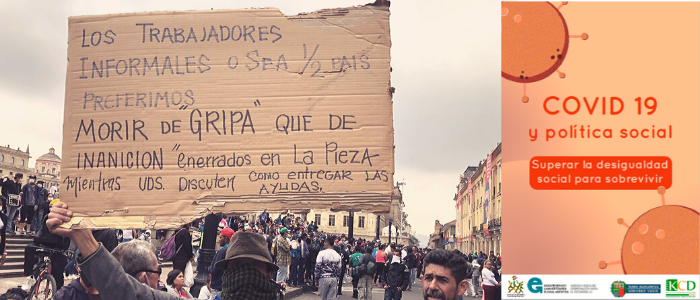 LOS TRABAJADORES
INFORMALES O SEA 1/2 PAIS
PREFERIMOS
MORIR DE "GRIPA" QUE DE
INANICION "enerrados en La Pieza
mientras UDS. Discuten como entregar las
AYUDAS.
COVID 19
y política social
Superar la desigualdad
social para sobrevivir
KCD